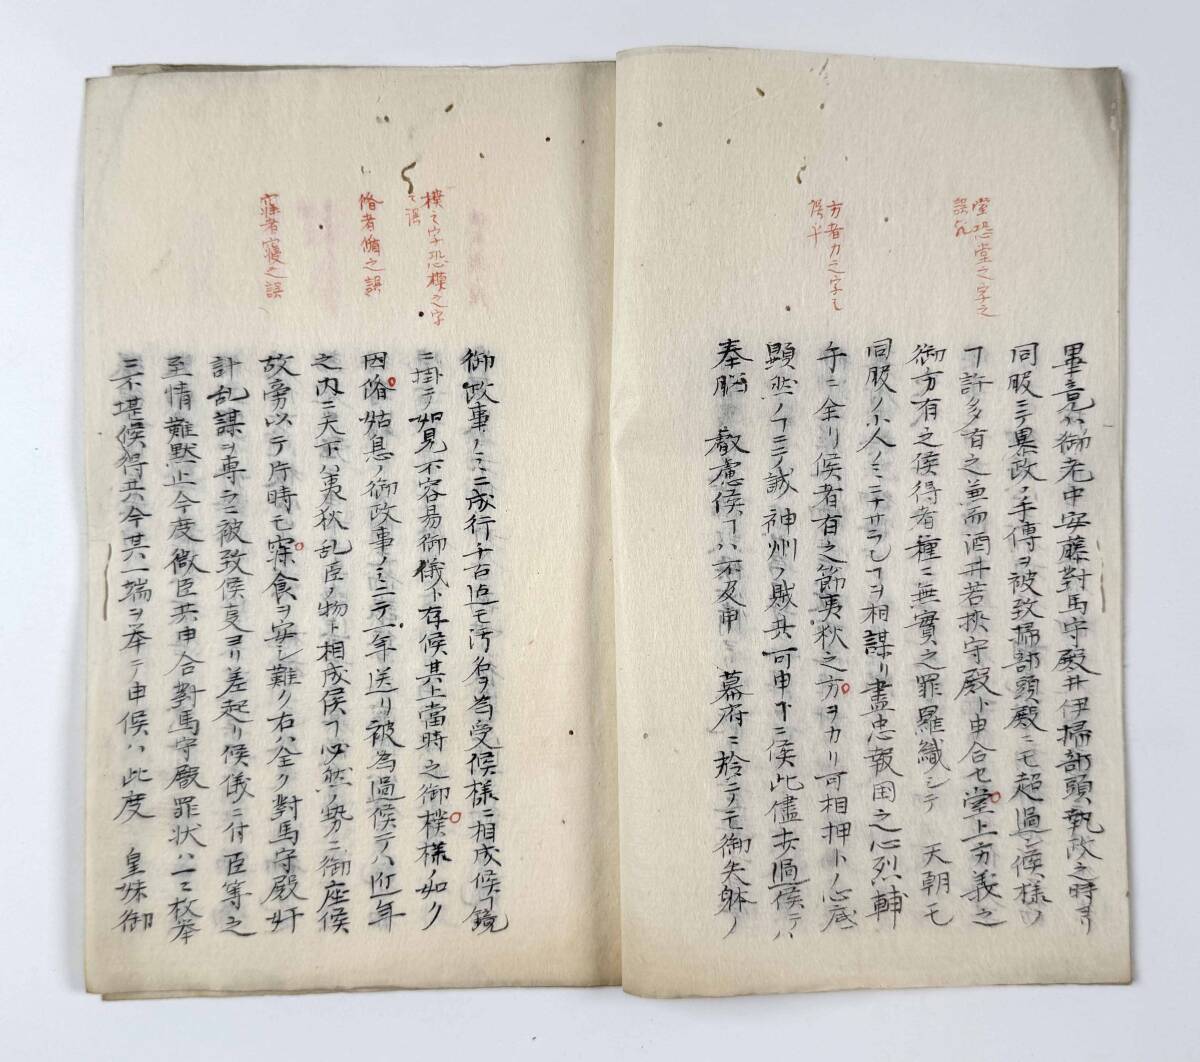 堂恐堂之字之
誤乞
方者力之字之
誤乎
畢竟ハ御老中安藤對馬守殿井伊掃部頭執政之時ヨリ
同服ニテ異政ノ手傳ヲ被致掃部頭殿ニモ超過シ候様ノ
ヿ許多有之並而酒井若挾守殿ト申合セ堂上方義之
御方有之候得者種ニ無實之罪羅織シテ 天朝モ
同服ノ小人ノミニナサラヒヿヲ相謀リ盡忠報国之心烈輔
手ニ余リ候者有之節夷狄之方ヲカリ可相押トノ心底
顕然ノヿニテ誠神州ノ賊共可申ヿニ候此儘歩過候テハ
奉脳 叡慮候ヿハ不及申 幕府ニ於ニテモ御失躰ノ
樸之字恐模之字
之誤
脩者循之誤
寐者寝之誤
御政事ノミニ成行千古迠モ汚名ヲ為受候様ニ相成候ヿ鏡
ニ掛テ如見不容易御儀ト存候其上當時之御樸様ノ如ク
因脩姑息ノ御政事ノミニテ一年送リ被為過候テハ近年
之内ニ天下ハ夷狄乱臣ノ物ト相成候ヿ必然ノ勢ニ御座候
故旁以テ片時モ寐食ヲ安シ難ク右ハ全ク對馬守殿奸
計乱謀ヲ専ラニ被致候㕝ヨリ差起リ候儀ニ付臣等之
至情難黙止今度微臣共申合對馬守殿罪状ハ一ニ枚挙
ニ不堪候得共今其一端ヲ挙テ申候ハ此度 皇妹御